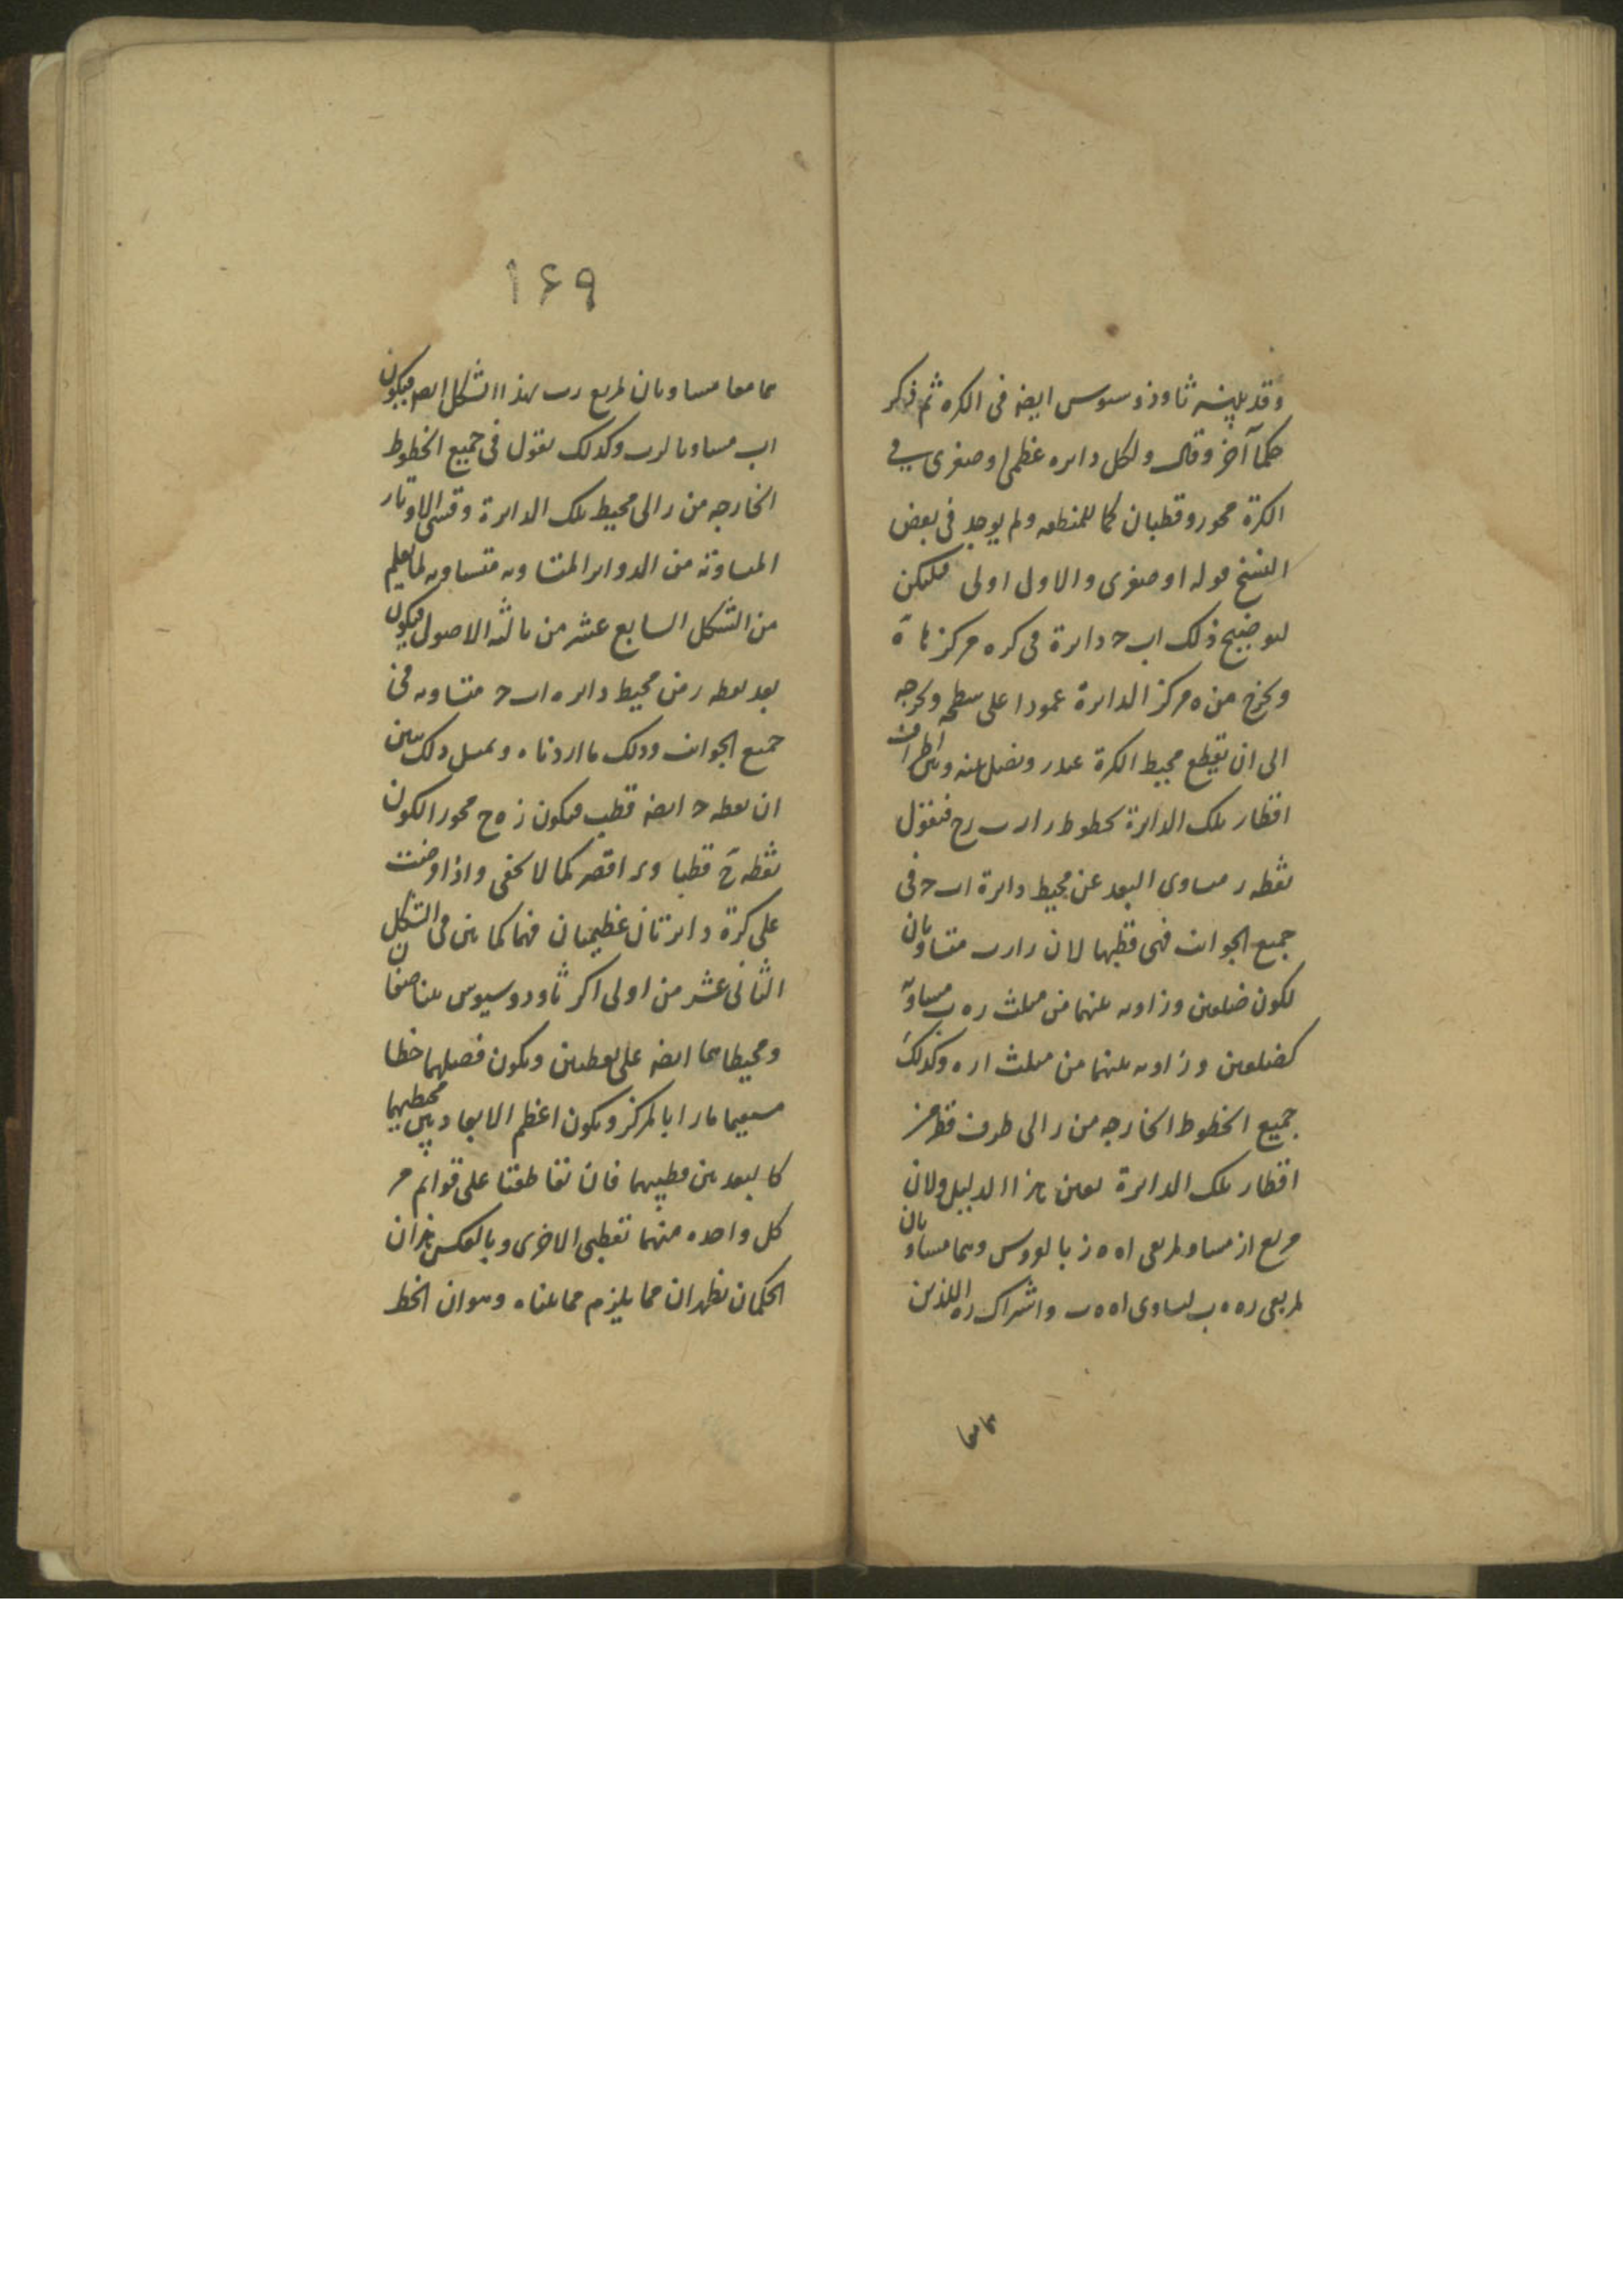 وقد بينه ثاوذوسوس ايضه فى الكره ثم ذكر
حكما آخر وقال ولكل دائره عظمى او صغرى في
الكرة محور وقطبان كما للمنطقه ولم يوجد فى بعض
النسخ قوله او صغرى والاول اولى فليكن
لتوضيح ذلك اب ح دائرة فى كره مركزها ه
ونخرج من ه مركز الدائرة عمودا على سطحه ونخرجه
الى ان يقطع محيط الكرة على ر ونصل بينه وبين اطراف
اقطار تلك الدائرة بخطوط ر ا ر ب ر ح فنقول
نقطه ر متساوى البعد عن محيط دائرة اب ح فى
جميع الجوانب فهى قطبها لان ر ا ر ب متساويان
لكون ضلعين وزاويه بينهما من مثلث ر ه ب مساويه
كضلعين وزاويه بينهما من مثلث ا ر ه وكذلك
جميع الخطوط الخارجه من ر الى طرف قطر من
اقطار تلك الدائرة بعين هذا الدليل ولان
مربع ا ز مساو لمربعى ا ه ه ز بالعروس وهما مساويان
لمربعى ر ه ه ب لتساوى ا ه ه ب واشتراك ر ه اللذين
هما معا
١۶٩
هما معا مساويان لمربع ر ب بهذا الشكل ايضه فيكون
ا ب مساويا لر ب وكذلك نقول فى جميع الخطوط
الخارجه من ر الى محيط تلك الدائرة وقسى الاوتار
المساوية من الدوائر المتساويه متساويه لما يعلم
من الشكل السابع عشر من ثالثه الاصول فيكون
بعد نقطه ر من محيط دائره اب ح متساويه فى
جميع الجوانب وذلك ما اردناه وبمثل ذلك يتبين
ان نقطه ح ايضه قطب فيكون ز ه ح محور الكون
نقطه ح قطبا كما لا يخفى واذا
على كرة دائرتان عظيمتان فهما كما بين فى الشكل
الثانى عشر من اولى اكر ثاودوسيوس يتناصفان
ومحيطاهما ايضه على نقطتين ويكون فصلهما خطا
مستقيما مارا بالمركز ويكون اعظم الابعاد بين محيطيهما
كالبعد بين قطبيهما فان تقاطعتا على قوائم مر
كل واحده منهما بقطبى الاخرى وبالعكس هذان
الحكمان يظهران مما يلزم مما بيناه وهو ان الخط